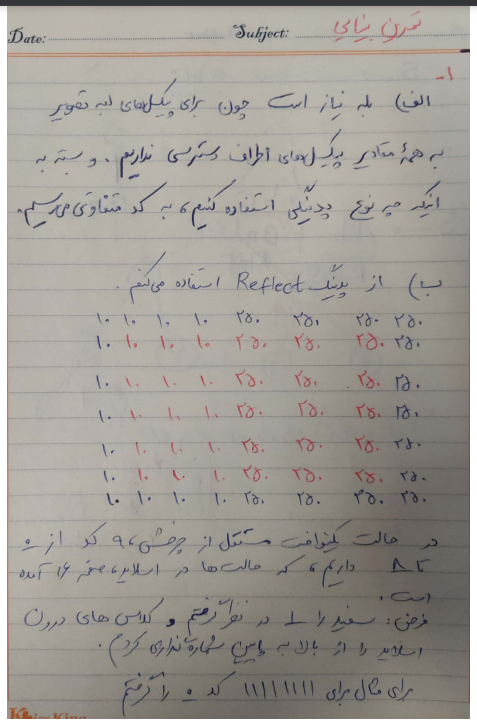 Date: Subject: تمرین بینایی
۱-
الف) بله نیاز است چون برای پیکسل‌های لبه تصویر
به همهٔ مقادیر پیکسل‌های اطراف دسترسی نداریم. و بسته به
اینکه چه نوع پدینگی استفاده کنیم، به کد متفاوتی می‌رسیم.
ب) از پدینگ Reflect استفاده می‌کنم.
۱۰ ۱۰ ۱۰ ۱۰ ۲۵۰ ۲۵۰ ۲۵۰ ۲۵۰
۱۰ ۱۰ ۱۰ ۱۰ ۲۵۰ ۲۵۰ ۲۵۰ ۲۵۰
۱۰ ۱۰ ۱۰ ۱۰ ۲۵۰ ۲۵۰ ۲۵۰ ۲۵۰
۱۰ ۱۰ ۱۰ ۱۰ ۲۵۰ ۲۵۰ ۲۵۰ ۲۵۰
۱۰ ۱۰ ۱۰ ۱۰ ۲۵۰ ۲۵۰ ۲۵۰ ۲۵۰
۱۰ ۱۰ ۱۰ ۱۰ ۲۵۰ ۲۵۰ ۲۵۰ ۲۵۰
۱۰ ۱۰ ۱۰ ۱۰ ۲۵۰ ۲۵۰ ۲۵۰ ۲۵۰
در حالت یکنواخت مستقل از چرخش، ۹ کد از ۰
تا ۸ داریم، که حالت‌ها در اسلاید، صفحه ۱۶ آمده
است.
فرض: سفید را ۱ در نظر گرفتم و کلاس های درون
اسلاید را از بالا به پایین شماره گذاری کردم.
برای مثال برای ۱۱۱۱۱۱۱۱ کد ۰ را گرفتم
King